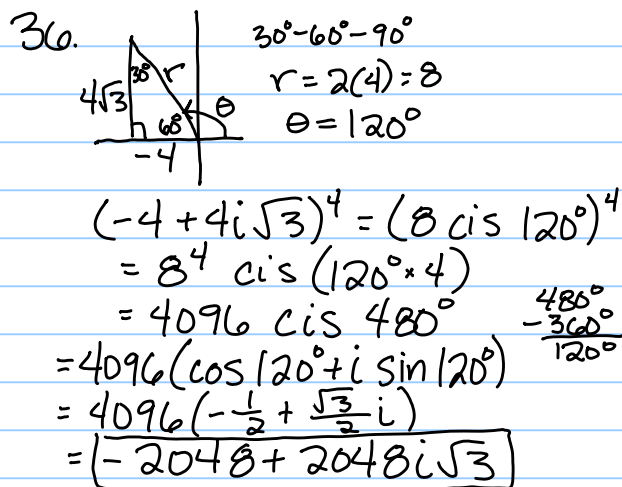 36.
30° r
4√3
60° θ
-4
30°-60°-90°
r = 2(4) = 8
θ = 120°
(-4 + 4i√3)⁴ = (8 cis 120°)⁴
= 8⁴ cis (120° × 4)
= 4096 cis 480°
480°
-360°
120°
= 4096 (cos 120° + i sin 120°)
= 4096 (-1/2 + √3/2 i)
= -2048 + 2048i√3